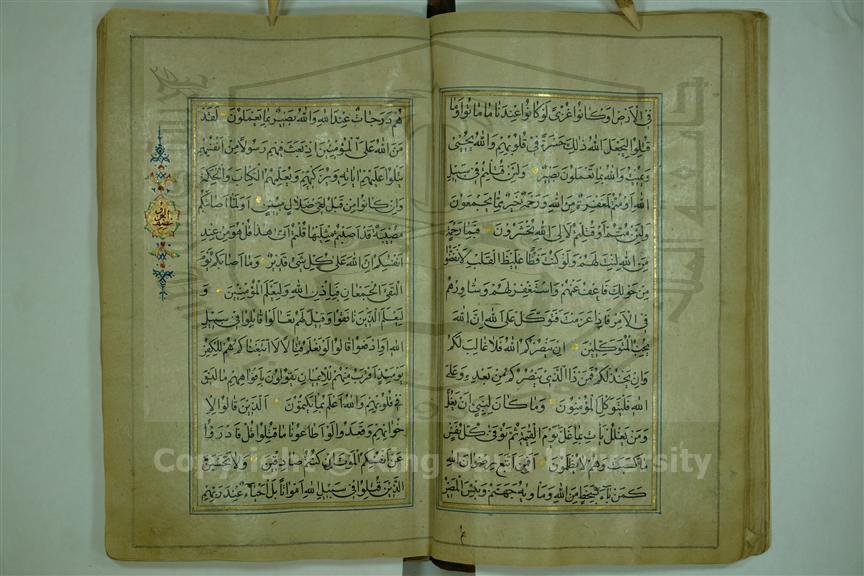 في الأرض وكانوا غزى لو كانوا عندنا ما ماتوا وما
قتلوا ليجعل الله ذلك حسرة في قلوبهم والله يحيي
ويميت والله بما تعملون بصير ولئن قتلتم في سبيل
الله أو متم لمغفرة من الله ورحمة خير مما يجمعون
ولئن متم أو قتلتم لإلى الله تحشرون فبما رحمة
من الله لنت لهم ولو كنت فظا غليظ القلب لانفضوا
من حولك فاعف عنهم واستغفر لهم وشاورهم
في الأمر فإذا عزمت فتوكل على الله إن الله
يحب المتوكلين إن ينصركم الله فلا غالب لكم
وإن يخذلكم فمن ذا الذي ينصركم من بعده وعلى
الله فليتوكل المؤمنون وما كان لنبي أن يغل
ومن يغلل يأت بما غل يوم القيمة ثم توفى كل نفس
ما كسبت وهم لا يظلمون أفمن اتبع رضوان الله
كمن باء بسخط من الله ومأويه جهنم وبئس المصير
هم درجات عند الله والله بصير بما يعملون لقد
من الله على المؤمنين إذ بعث فيهم رسولا من أنفسهم
يتلوا عليهم آياته ويزكيهم ويعلمهم الكتاب والحكمة
وإن كانوا من قبل لفي ضلال مبين أولما أصابتكم
مصيبة قد أصبتم مثليها قلتم أنى هذا قل هو من عند
أنفسكم إن الله على كل شئ قدير وما أصابكم يوم
التقى الجمعان فبإذن الله وليعلم المؤمنين و
ليعلم الذين نافقوا وقيل لهم تعالوا قاتلوا في سبيل
الله أو ادفعوا قالوا لو نعلم قتالا لاتبعناكم هم للكفر
يومئذ أقرب منهم للإيمان يقولون بأفواههم ما ليس
في قلوبهم والله أعلم بما يكتمون الذين قالوا لإ
خوانهم وقعدوا لو أطاعونا ما قتلوا قل فادرؤا
عن أنفسكم الموت إن كنتم صادقين ولا تحسبن
الذين قتلوا في سبيل الله أمواتا بل أحياء عند ربهم
Copyright © King Saud University